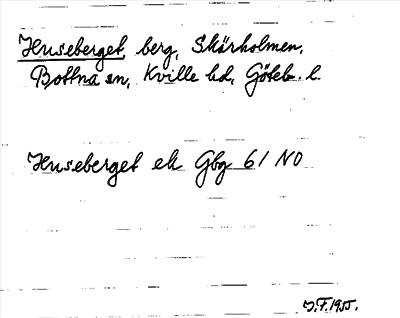 Huseberget, berg, Skärholmen,
Bottna sn, Kville hd, Göteb. l.
Huseberget ek Gbg 61 NO
J.F. 1955.